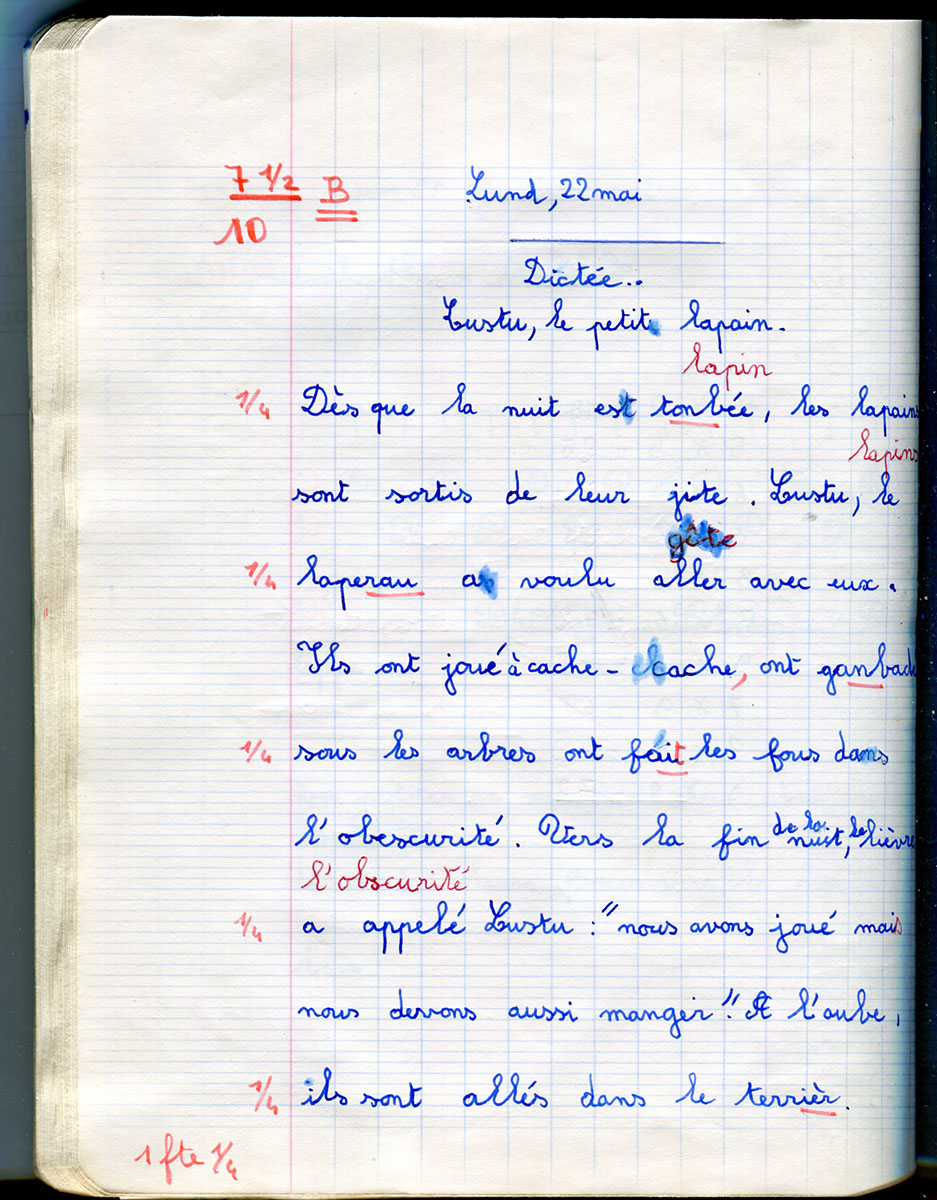 7 1/2 B Lund, 22 mai
10
Dictée..
Lustu, le petit lapain.
lapin
1/4 Dès que la nuit est tonbée, les lapains
lapins
sont sortis de leur jite. Lustu, le
gîte
1/4 laperau a voulu aller avec eux.
Ils ont joué à cache-cache, ont ganbadé
1/4 sous les arbres ont fait les fous dans
l'obescurité. Vers la fin de la nuit, le lièvre
l'obscurité
1/4 a appelé Lustu : "nous avons joué mais
nous devons aussi manger". A l'aube,
1/4 ils sont allés dans le terrièr.
1 fte 1/4